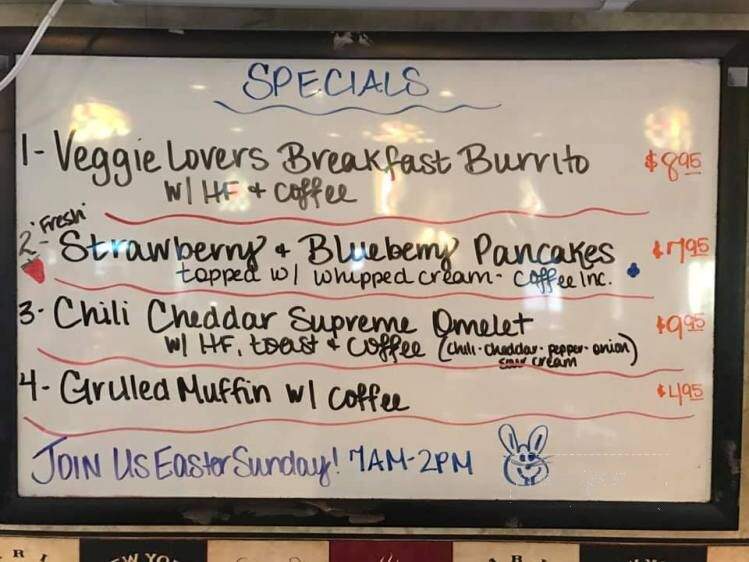 SPECIALS
1- Veggie Lovers Breakfast Burrito $8.95
w/ HF + coffee
"Fresh"
2- Strawberry + Blueberry Pancakes $7.95
topped w/ whipped cream - coffee inc.
3- Chili Cheddar Supreme Omelet $9.95
w/ HF, toast + coffee (chili - cheddar - pepper - onion)
sour cream
4- Grilled Muffin w/ coffee $4.95
JOIN US Easter Sunday! 7AM-2PM